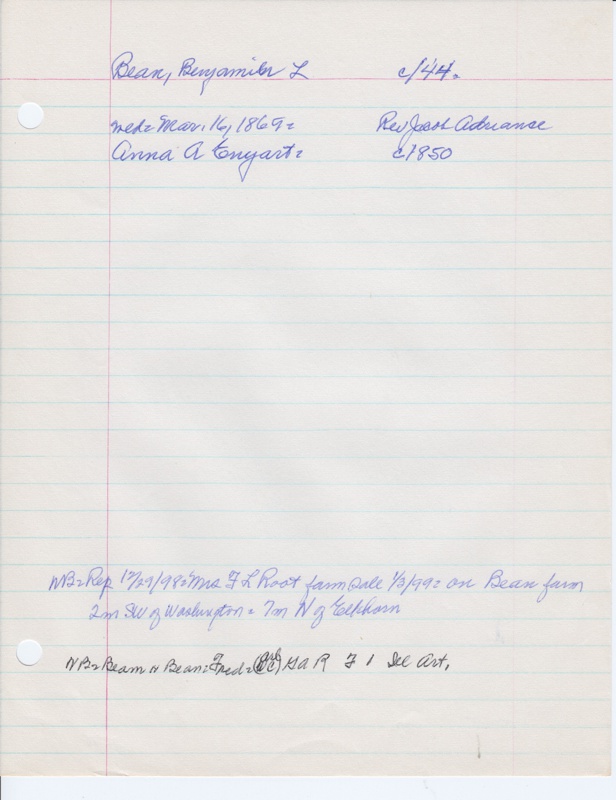 Bean, Benjamin L c/44.
med= Mar. 16, 1869= Rev Jacob Adriance
Anna A Enyart= c1850
NB=Rep 12/29/98= Mrs F L Root farm sale 1/3/99= on Bean farm
2m SW of Washington = 7m N of Elkhorn
NB=Beam N Bean= Fred= GAR F 1 Ill Art.